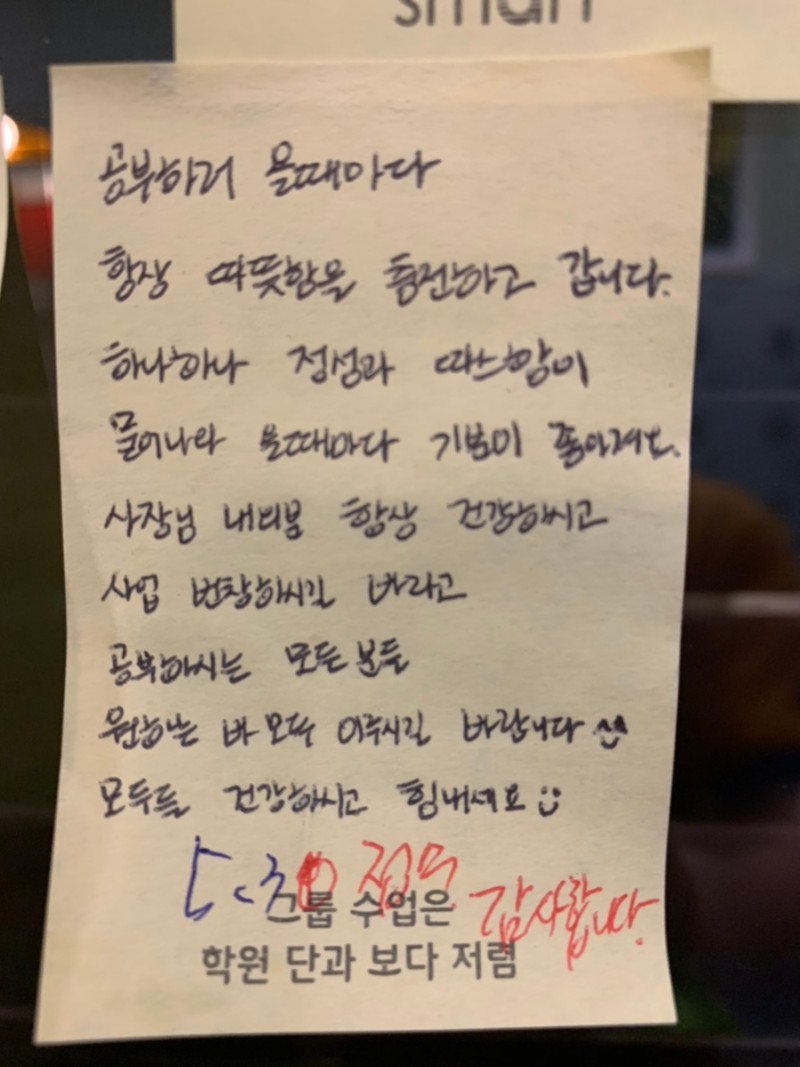 smart
공부하러 올때마다
항상 따뜻함을 충전하고 갑니다.
하나하나 정성과 따스함이
묻어나와 올때마다 기분이 좋아져요.
사장님 내외분 항상 건강하시고
사업 번창하시길 바라고
공부하시는 모든분들
원하는 바 모두 이루시길 바랍니다
모두들 건강하시고 힘내세요
감사합니다.
그룹 수업은
학원 단과 보다 저렴